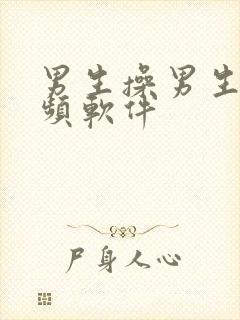 男生操男生
頻軟件
尸身人心